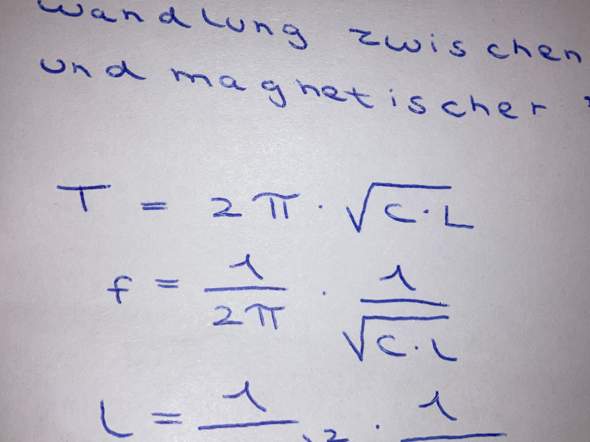 wandlung zwischen
und magnetischer
T = 2π · √C·L
f = 1/2π · 1/√C·L
L = 1/ 2 · 1/